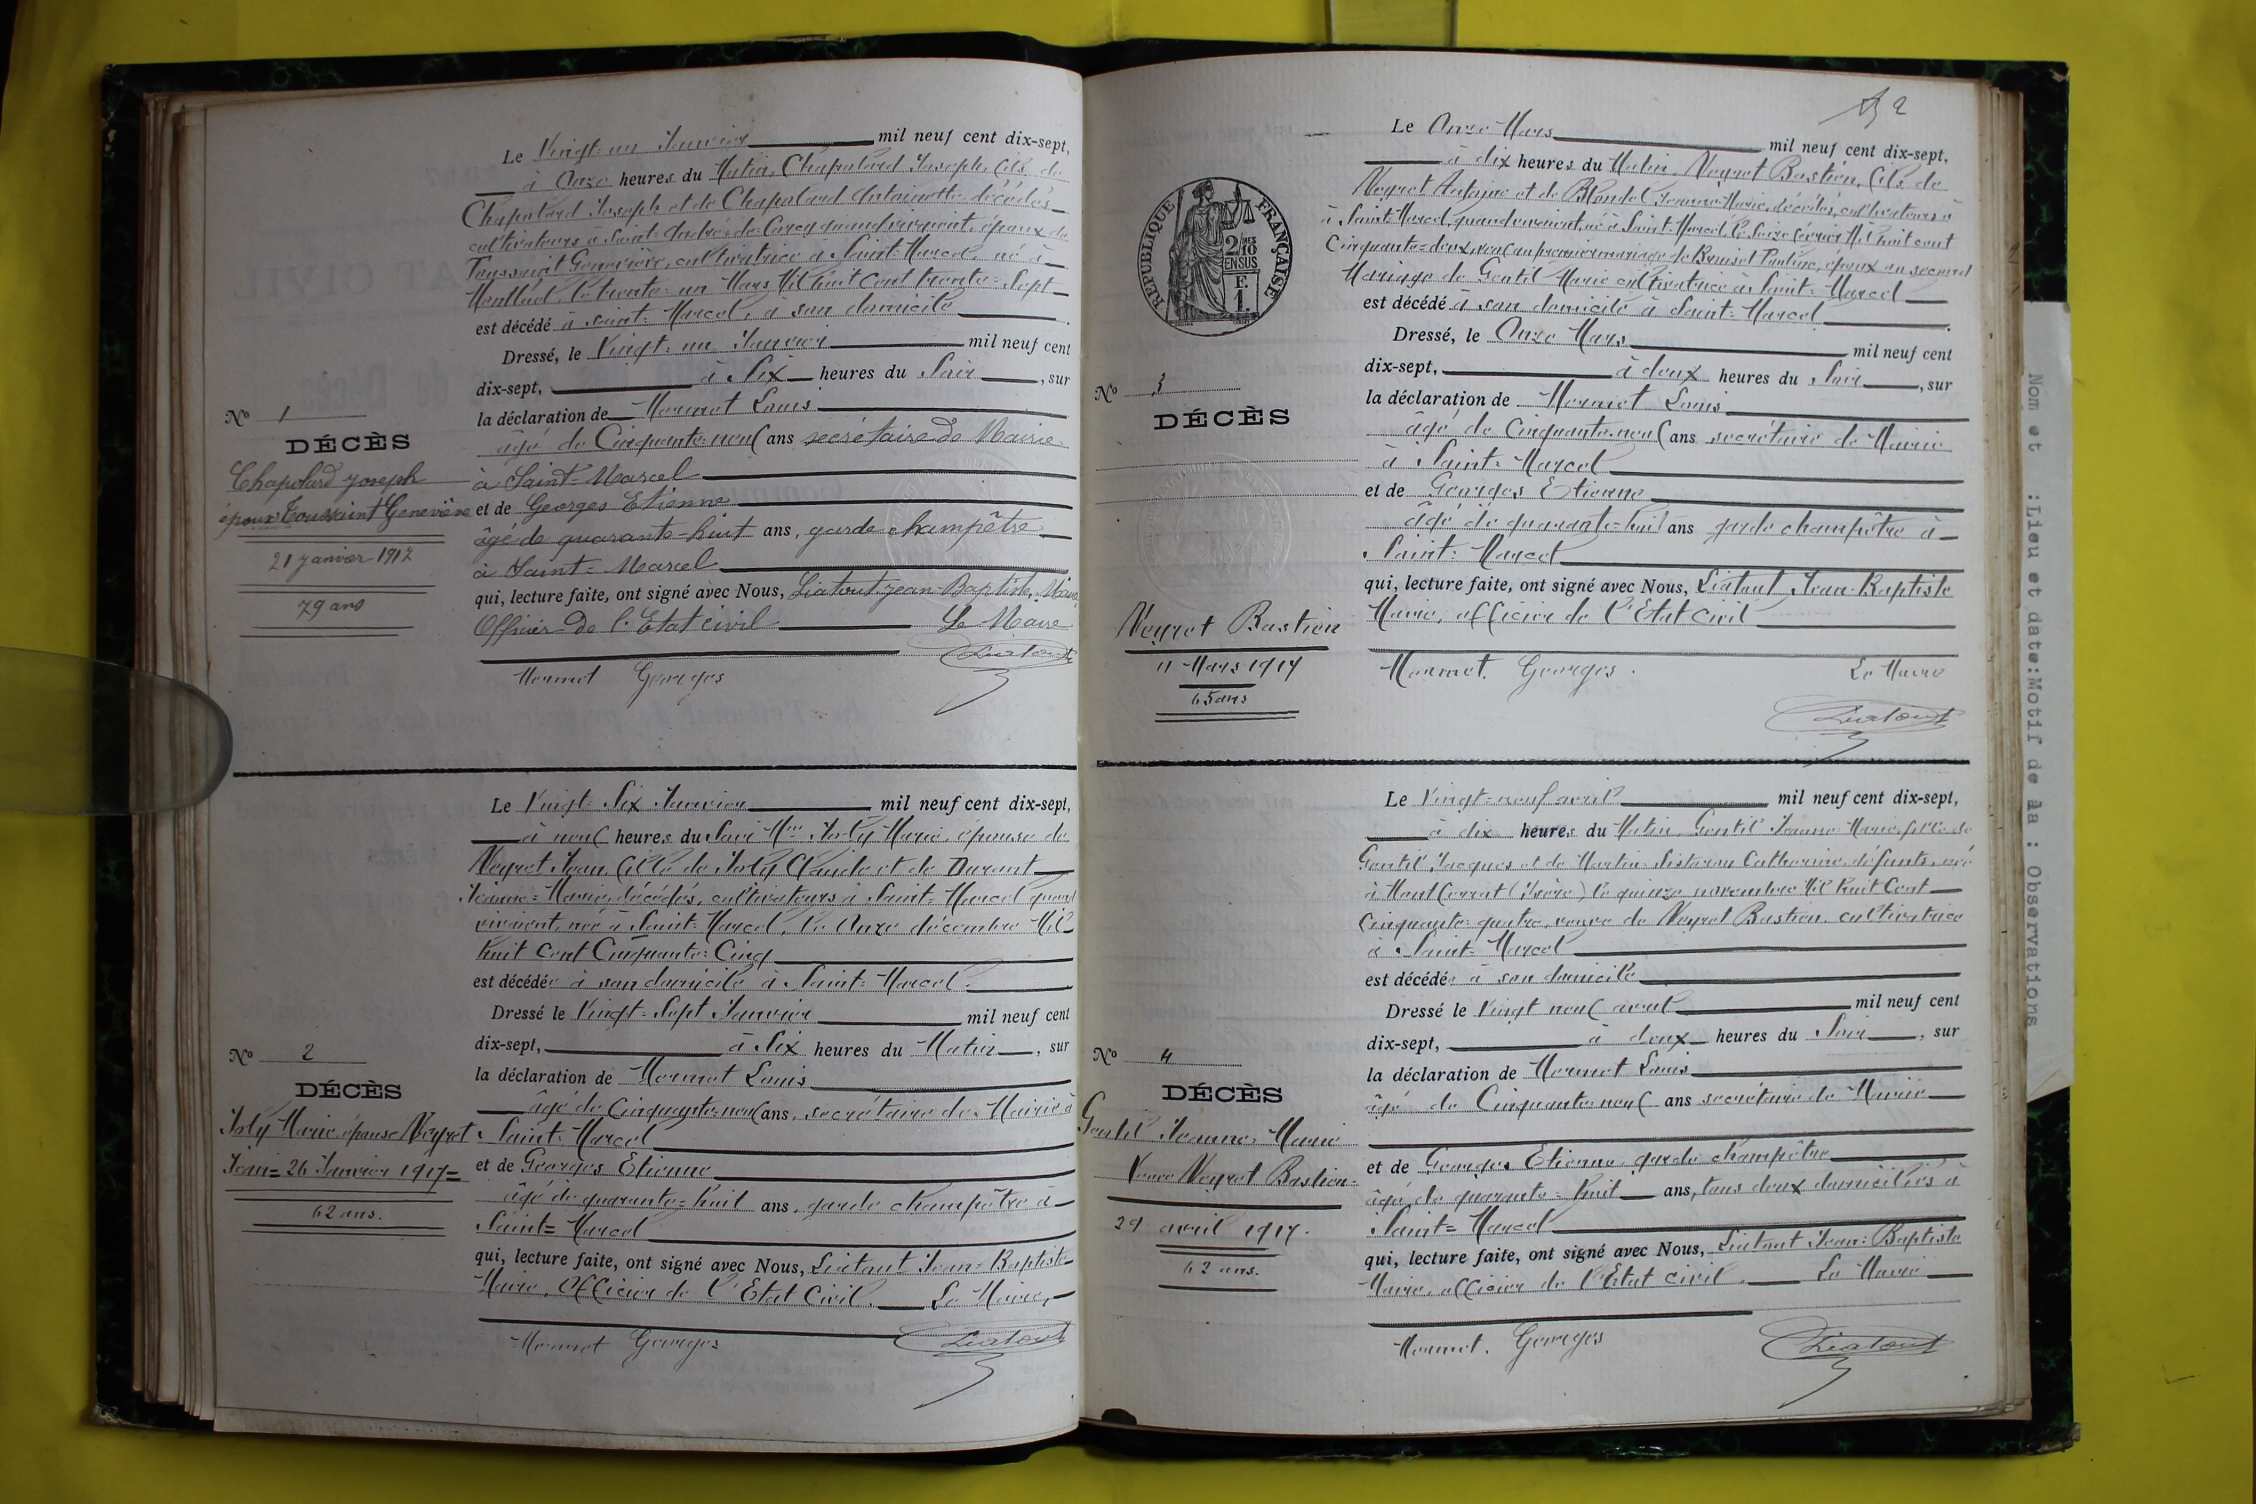 Le Vingt-un Janvier mil neuf cent dix-sept,
à Onze heures du Matin, Chapolard Joseph, fils de
Chapolard Joseph et de Chapolard Antoinette décédés
cultivateurs à Saint-André-de-Corcy quand vivaient, époux de
Toussaint Geneviève, cultivatrice à Saint-Marcel, né à
Montluel, le trente-un Mars Mil huit cent trente-Sept
est décédé à Saint-Marcel, à son domicile
Dressé, le Vingt-un Janvier mil neuf cent
dix-sept, à Six heures du Soir, sur
la déclaration de Mermet Louis
âgé de Cinquante-neuf ans secrétaire de Mairie
à Saint-Marcel
et de Georges Etienne
âgé de quarante-huit ans, garde-champêtre
à Saint-Marcel
qui, lecture faite, ont signé avec Nous, Liatout Jean-Baptiste, Maire,
Officier de l'Etat civil Le Maire
Mermet Georges Liatout
No 1
DÉCÈS
Chapolard Joseph
époux Toussaint Geneviève
21 janvier 1917
79 ans
Le Vingt-Six Janvier mil neuf cent dix-sept,
à neuf heures du Soir Mme Joly Marie, épouse de
Neyret Jean, fille de Joly Claude et de Durant
Jeanne-Marie, décédés, cultivateurs à Saint-Marcel quand
vivaient, née à Saint-Marcel, le Onze décembre Mil
huit cent Cinquante-Cinq
est décédée à son domicile à Saint-Marcel.
Dressé le Vingt-Sept Janvier mil neuf cent
dix-sept, à Six heures du Matin, sur
la déclaration de Mermet Louis
âgé de Cinquante-neuf ans, secrétaire de Mairie à
Saint-Marcel
et de Georges Etienne
âgé de quarante-huit ans, garde champêtre à
Saint-Marcel
qui, lecture faite, ont signé avec Nous, Liatout Jean-Baptiste
Maire, Officier de l'Etat Civil. Le Maire,
Mermet Georges Liatout
No 2
DÉCÈS
Joly Marie épouse Neyret
Jean = 26 Janvier 1917 =
62 ans.
2
Le Onze Mars mil neuf cent dix-sept,
à dix heures du Matin, Neyret Bastien, fils de
Neyret Antoine et de Blondel Jeanne-Marie, décédés, cultivateurs à
à Saint-Marcel quand vivaient, né à Saint-Marcel, le Seize février Mil huit cent
Cinquante-deux, veuf au premier mariage de Pauline, époux au second
Mariage de Gentil Marie cultivatrice à Saint-Marcel
est décédé à son domicile à Saint-Marcel
Dressé, le Onze Mars mil neuf cent
dix-sept, à deux heures du Soir, sur
la déclaration de Mermet Louis
âgé de Cinquante-neuf ans secrétaire de Mairie
à Saint-Marcel
et de Georges Etienne
âgé de quarante-huit ans garde champêtre à
Saint-Marcel
qui, lecture faite, ont signé avec Nous, Liatout Jean-Baptiste
Maire, officier de l'Etat Civil
Mermet. Georges. Le Maire
Liatout
RÉPUBLIQUE FRANÇAISE
2 MES
10
EN SUS
F.
1.
No 3
DÉCÈS
Neyret Bastien
11 Mars 1917
65 ans
Le Vingt-neuf avril mil neuf cent dix-sept,
à dix heures du Matin, Gentil Jeanne-Marie, fille de
Gentil Jacques et de Martin-Sisteron Catherine, défunts, née
à Montferrat (Isère) le quinze novembre Mil huit Cent
Cinquante-quatre, veuve de Neyret Bastien, cultivatrice
à Saint-Marcel
est décédée à son domicile
Dressé le Vingt neuf avril mil neuf cent
dix-sept, à deux heures du Soir, sur
la déclaration de Mermet Louis
âgé de Cinquante-neuf ans secrétaire de Mairie
et de Georges Etienne garde champêtre
âgé de quarante-huit ans, tous deux domiciliés à
Saint-Marcel
qui, lecture faite, ont signé avec Nous, Liatout Jean-Baptiste
Maire, officier de l'Etat civil. Le Maire
Mermet. Georges Liatout
No 4
DÉCÈS
Gentil Jeanne-Marie
Veuve Neyret Bastien
29 avril 1917.
62 ans.
Nom et :Lieu et date:Motif de la : Observations